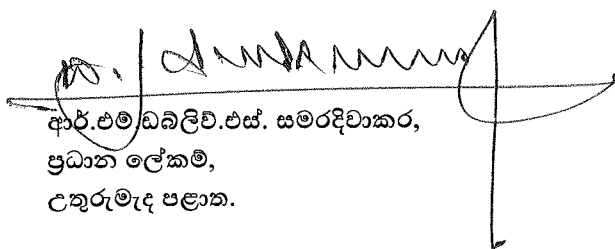 ආර්.එම්.ඩබ්ලිව්.එස්. සමරදිවාකර,
ප්‍රධාන ලේකම්,
උතුරුමැද පළාත.